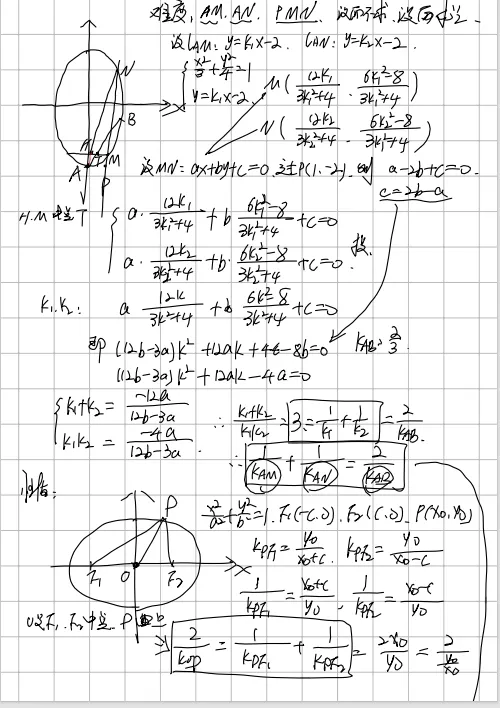 难度, AM. AN. PMN. 设而不求.
设lAM: y=k₁x-2. lAN: y=k₂x-2.
{ x²/3+y²/4=1
y=k₁x-2.
M( 12k₁/(3k₁²+4) . (6k₁²-8)/(3k₁²+4) )
N( 12k₂/(3k₂²+4) . (6k₂²-8)/(3k₂²+4) )
N
B
x
A
M
P
T
设MN: ax+by+c=0 过P(1,-2). 则 a-2b+c=0.
c=2b-a
H.M中点T
{ a· 12k₁/(3k₁²+4) + b (6k₁²-8)/(3k₁²+4) +c=0
a· 12k₂/(3k₂²+4) + b· (6k₂²-8)/(3k₂²+4) +c=0.
k₁.k₂: a 12k/(3k²+4) + b (6k²-8)/(3k²+4) +c=0
即 (12b-3a)k²+12ak+4c-8b=0
kAB=2/3.
(12b-3a)k²+12ak-4a=0
{ k₁+k₂ = -12a/(12b-3a)
k₁k₂ = -4a/(12b-3a)
∴ (k₁+k₂)/(k₁k₂) =3= 1/k₁+1/k₂ = 2/kAB.
∴ 1/kAM + 1/kAN = 2/kAB
P
F₁ O F₂ x
x²/a²+y²/b²=1. F₁(-c,0). F₂(c,0). P(x₀,y₀)
kPF₁= y₀/(x₀+c). kPF₂= y₀/(x₀-c)
1/kPF₁ = (x₀+c)/y₀. 1/kPF₂ = (x₀-c)/y₀
F₁. F₂中点. P
⇒ 2/kOP = 1/kPF₁ + 1/kPF₂ = 2x₀/y₀ = 2/(y₀/x₀)